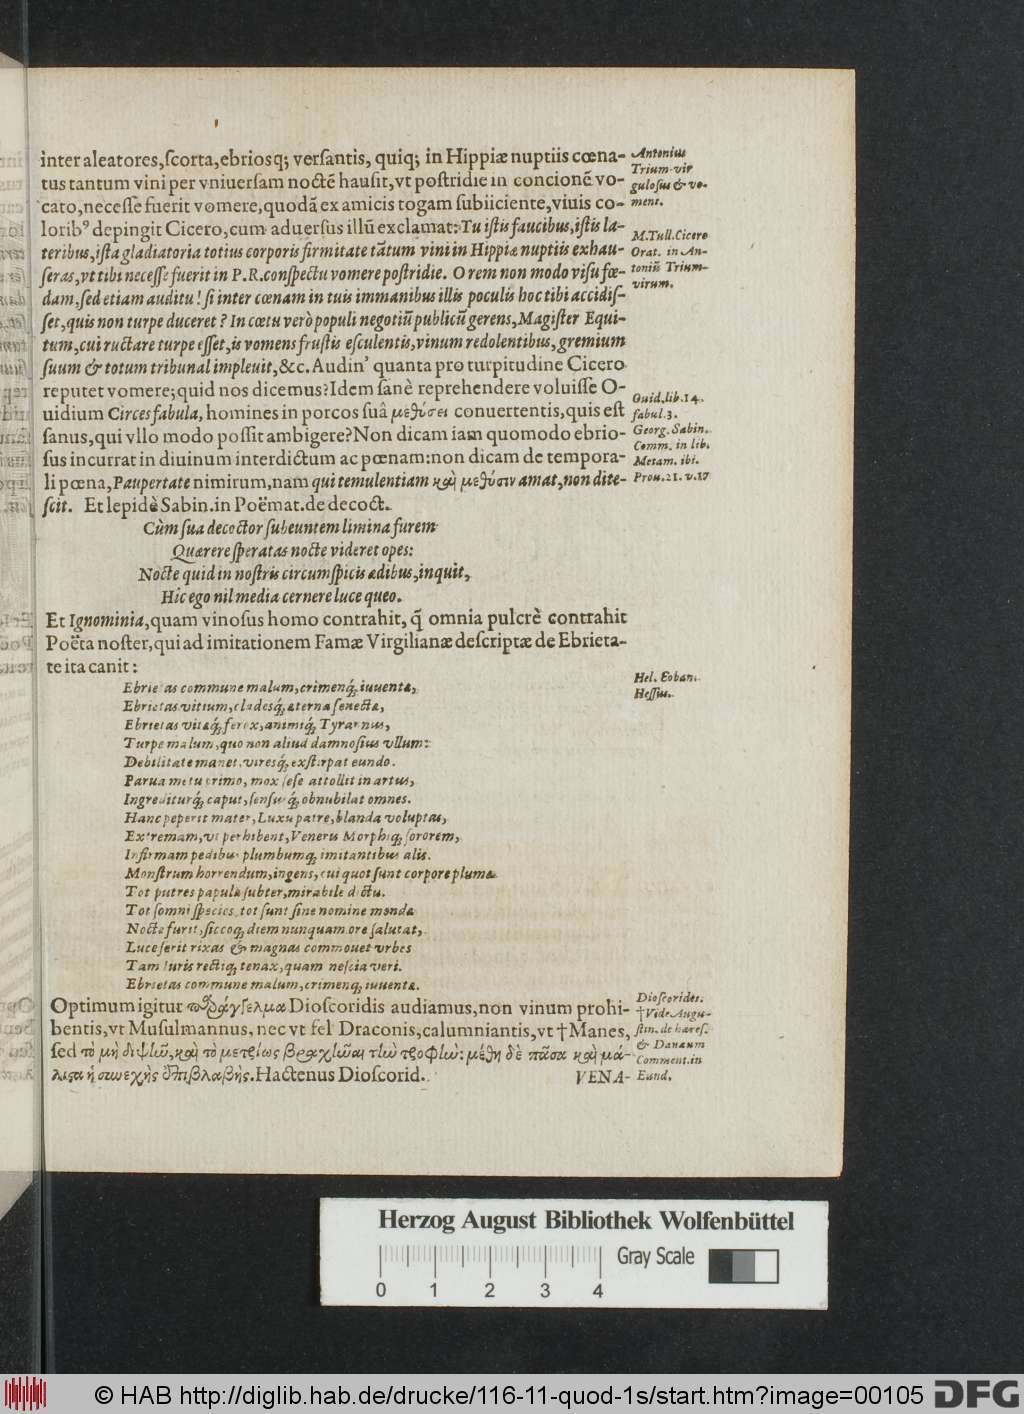 inter aleatores, ſcorta, ebriosq; verſantis, quiq; in Hippiæ nuptiis cœna-
tus tantum vini per vniuerſam noctẽ hauſit, vt poſtridie in concionẽ vo-
cato, neceſſe fuerit vomere, quodã ex amicis togam ſubiiciente, viuis co-
loribꝰ depingit Cicero, cum aduerſus illũ exclamat: Tu iſtis faucibus, iſtis la-
teribus, iſta gladiatoria totius corporis firmitate tãtum vini in Hippiæ nuptiis exhau-
ſeras, vt tibi neceſſe fuerit in P.R. conſpectu vomere poſtridie. O rem non modo viſu fœ-
dam, ſed etiam auditu! ſi inter cœnam in tuis immanibus illis poculis hoc tibi accidiſ-
ſet, quis non turpe duceret? In cœtu verò populi negotiũ publicũ gerens, Magiſter Equi-
tum, cui ructare turpe eſſet, is vomens fruſtis eſculentis, vinum redolentibus, gremium
ſuum & totum tribunal impleuit, &c. Audin' quanta pro turpitudine Cicero
reputet vomere; quid nos dicemus? Idem ſanè reprehendere voluiſſe O-
uidium Circes fabula, homines in porcos ſuâ μεθύσει conuertentis, quis eſt
ſanus, qui vllo modo poſſit ambigere? Non dicam iam quomodo ebrio-
ſus incurrat in diuinum interdictum ac pœnam: non dicam de tempora-
li pœna, Paupertate nimirum, nam qui temulentiam καὶ μεθύσιν amat, non dite-
ſcit. Et lepidè Sabin. in Poëmat. de decoct.
Cùm ſua decoctor ſubeuntem limina furem
Quærere ſperatas nocte videret opes:
Nocte quid in noſtris circumſpicis ædibus, inquit,
Hic ego nil media cernere luce queo.
Et Ignominia, quam vinoſus homo contrahit, q̃ omnia pulcrè contrahit
Poëta noſter, qui ad imitationem Famæ Virgilianæ deſcriptæ de Ebrieta-
te ita canit:
Ebrietas commune malum, crimenq́; iuuentæ,
Ebrietas vitium, cladesq́; æterna ſenectæ,
Ebrietas vitæq́; ferox, animiq́; Tyrannus,
Turpe malum, quo non aliud damnoſius vllum:
Debilitate manet, viresq́; exſtirpat eundo.
Parua metu primo, mox ſeſe attollit in artus,
Ingrediturq́; caput, ſenſusq́; obnubilat omnes.
Hanc peperit mater, Luxu patre, blanda voluptas,
Extremam, vt perhibent, Veneris Morphiq; ſororem,
Infirmam pedibus plumbumq; imitantibus alis.
Monſtrum horrendum, ingens, cui quot ſunt corpore plumæ
Tot putres papulæ ſubter, mirabile dictu.
Tot ſomni ſpecies, tot ſunt ſine nomine mendæ
Nocte furit, ſiccoq; diem nunquam ore ſalutat,
Luce ſerit rixas & magnas commouet vrbes
Tam Iuris rectiq; tenax, quam neſcia veri.
Ebrietas commune malum, crimenq; iuuentæ.
Optimum igitur παράγγελμα Dioſcoridis audiamus, non vinum prohi-
bentis, vt Muſulmannus, nec vt fel Draconis, calumniantis, vt † Manes,
ſed τὸ μὴ διψῶν, καὶ τὸ μετρίως βραχῶναι τὴν τροφὴν: μέθη δὲ πᾶσα καὶ μά-
λιστα ἡ συνεχὴς ἐπιβλαβής. Hactenus Dioſcorid.
VENA-
Antonius
Trium-vir
guloſus & vo-
ment.
M. Tull. Cicero
Orat. in An-
toniũ Trium-
virum.
Ouid. lib. 14.
fabul. 3.
Georg. Sabin.
Comm. in lib.
Metam. ibi.
Prou. 21. v. 17
Hel. Eoban.
Heſſus.
Dioſcorides.
† Vide Augu-
ſtin. de hæreſ.
& Danæum
Comment. in
Eund.
Herzog August Bibliothek Wolfenbüttel
Gray Scale
0 1 2 3 4
© HAB http://diglib.hab.de/drucke/116-11-quod-1s/start.htm?image=00105
DFG